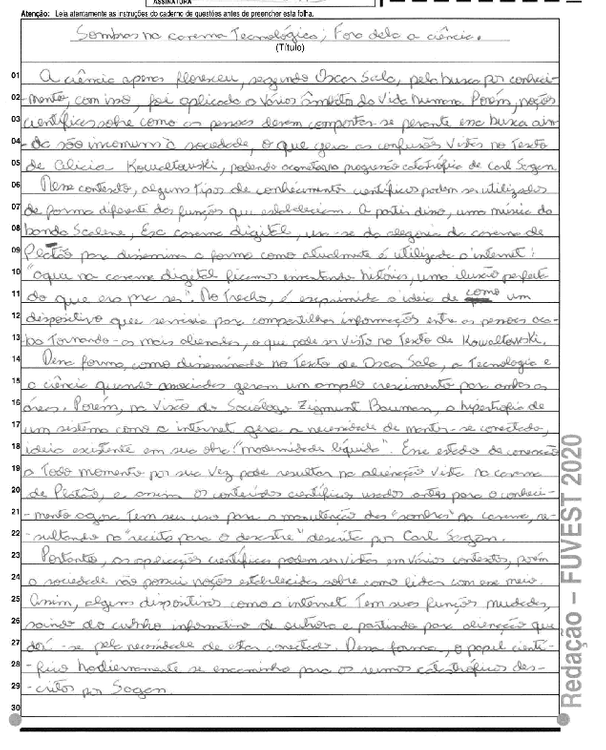 ASSINATURA
Atenção: Leia atentamente as instruções do caderno de questões antes de preencher esta folha.
Sombras na caverna Tecnológica; Fora dela a ciência.
(Título)
01 A ciência apenas floresceu, segundo Oscar Sala, pela busca por conheci-
02 mento, com isso, foi aplicada a vários âmbitos da vida humana. Porém, noções
03 científicas sobre como as pessoas devem comportar-se perante essa busca ain-
04 da são incomuns à sociedade, o que gera as confusões vistas no texto
05 de Alicia Kowaltowski, podendo acarretar na progressão catastrófica de Carl Sagan.
06 Nesse contexto, alguns tipos de conhecimentos científicos podem ser utilizados
07 de forma diferente das funções que estabeleciam. A partir disso, uma música da
08 banda Scalene, Esc caverna digital, usa-se da alegoria da caverna de
09 Platão para disseminar a forma como atualmente é utilizada a internet:
10 "aqui na caverna digital ficamos inventando histórias, uma ilusão perfeita
11 do que era pra ser". No trecho, é exprimida a ideia de como um
12 dispositivo que serviria para compartilhar informações entre as pessoas aca-
13 ba tornando-as mais alienadas, o que pode ser visto no texto de Kowaltowski.
14 Dessa forma, como disseminado no texto de Oscar Sala, a tecnologia e
15 a ciência quando associadas geram um amplo crescimento para ambas as
16 áreas. Porém, na visão do Sociólogo Zigmunt Bauman, a hipertrofia de
17 um sistema como a internet gera a necessidade de manter-se conectado,
18 ideia existente em sua obra "modernidade líquida". Esse estado de conexão
19 a todo momento por sua vez pode resultar na alienação vista na caverna
20 de Platão, e assim os conteúdos científicos usados antes para o conheci-
21 -mento agora tem seu uso para a manutenção das "sombras" da caverna, re-
22 -sultando na "receita para o desastre" descrita por Carl Sagan.
23 Portanto, as aplicações científicas podem ser vistas em vários contextos, porém
24 a sociedade não possui noções estabelecidas sobre como lidar com esse meio.
25 Assim, alguns dispositivos como a internet tem suas funções mudadas,
26 saindo do cunho informativo de outrora e partindo para alienação que
27 dá-se pela necessidade de estar conectado. Dessa forma, o papel cientí-
28 -fico hodiernamente se encaminha para os rumos catastróficos des-
29 -critos por Sagan.
30
Redação – FUVEST 2020